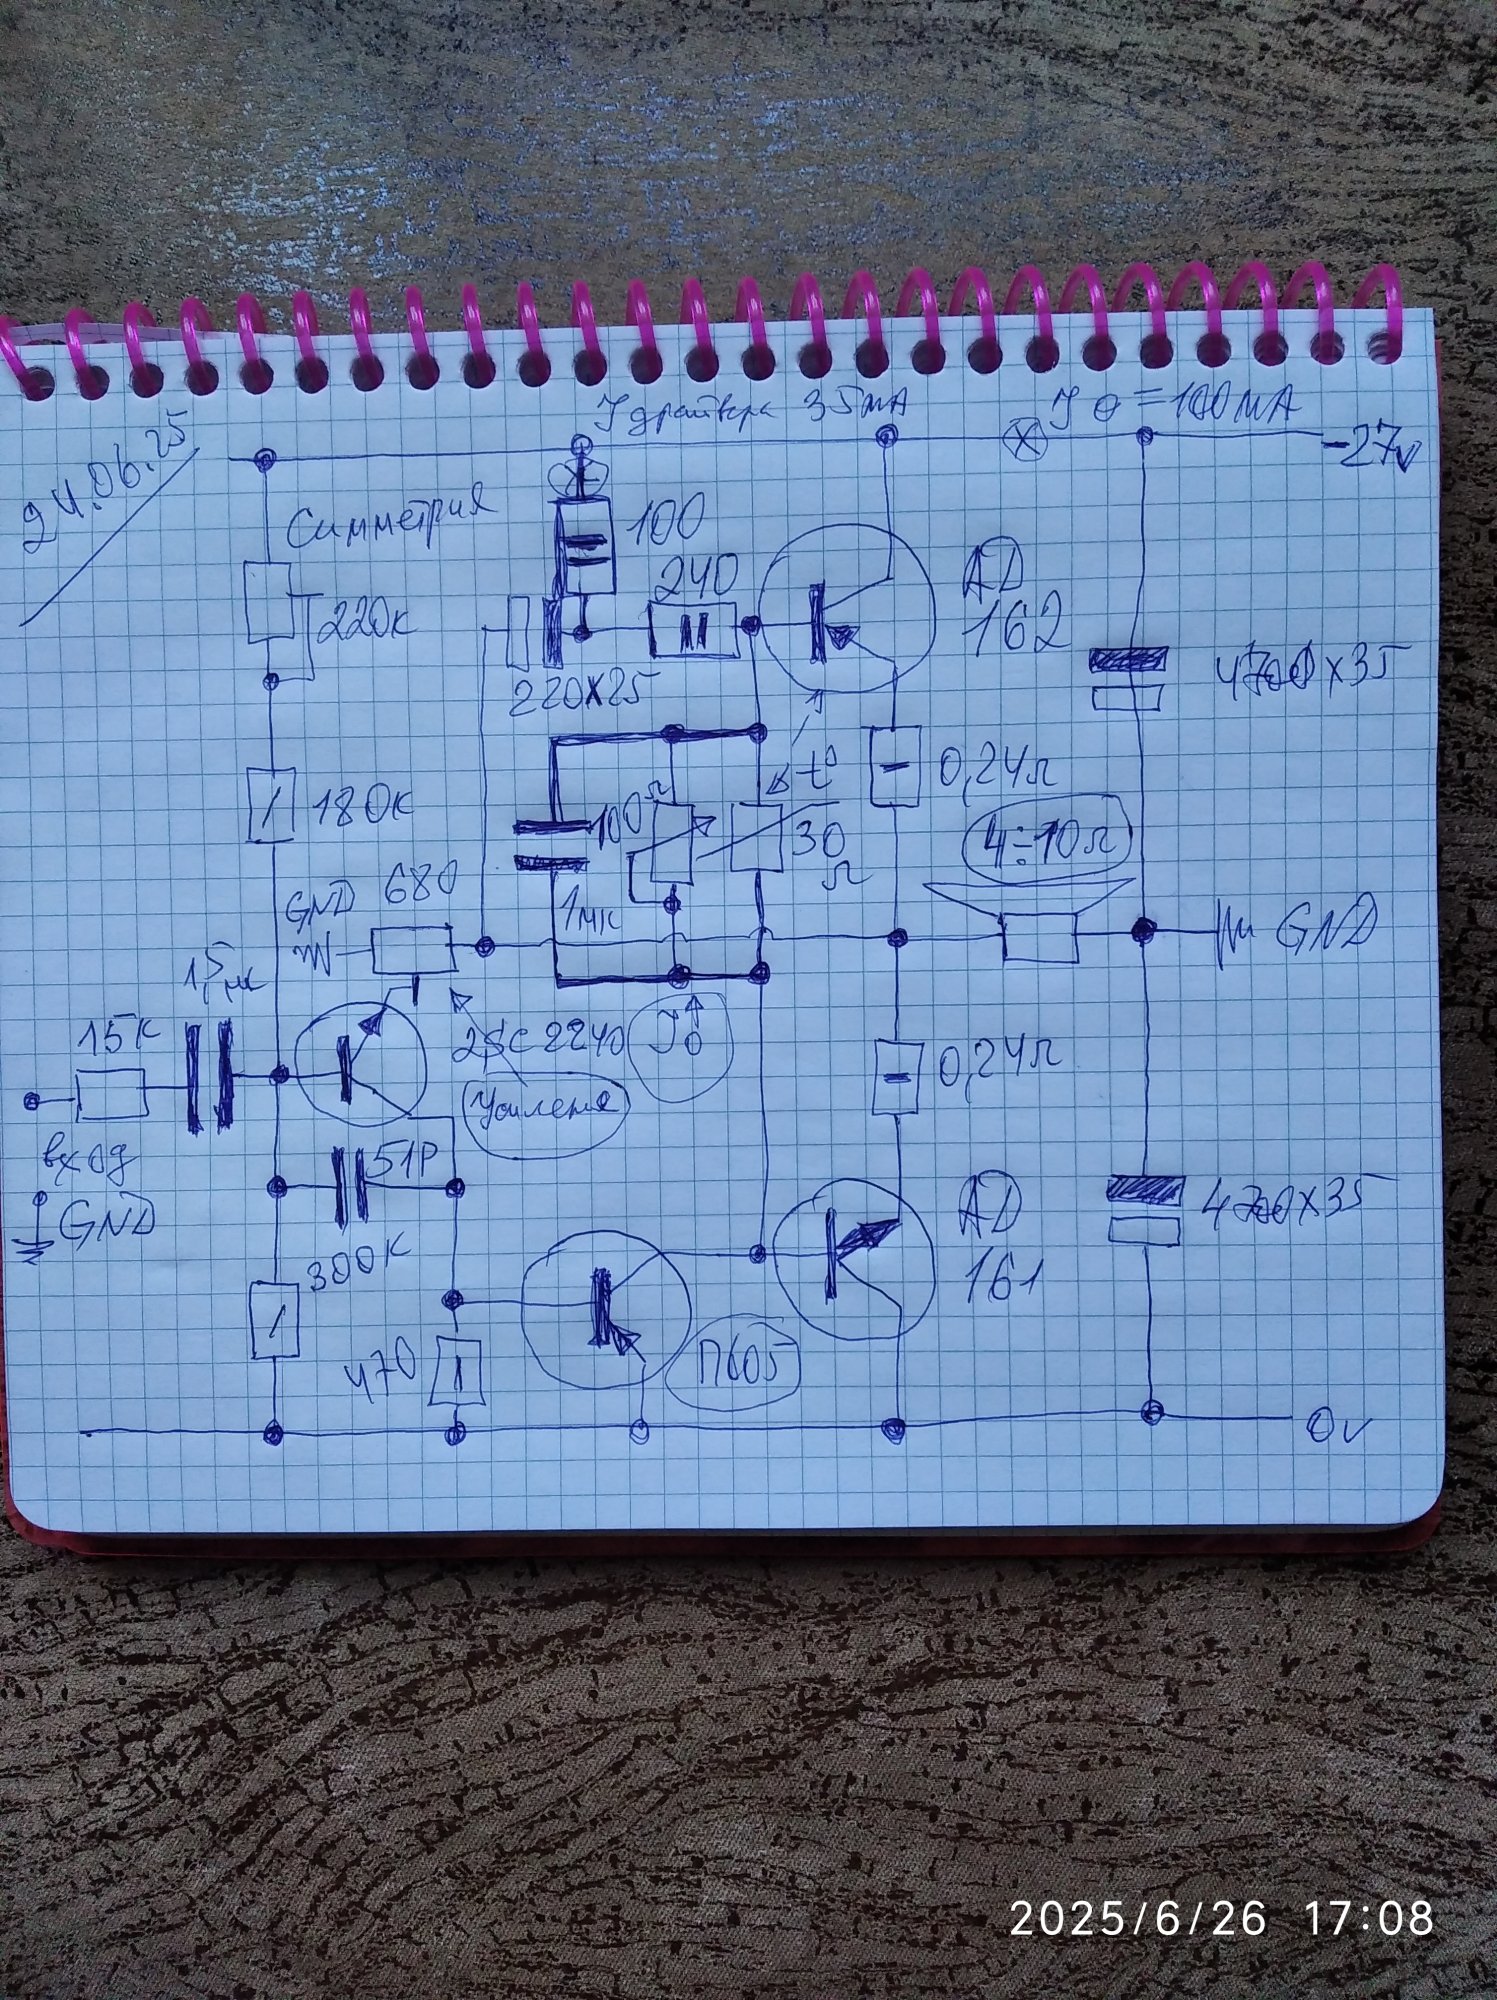 24.06.25
I драйвера 35мА
I 0 = 100мА
-27v
Симметрия
100
240
220к
220x25
AD
162
4700x35
180к
100Ω
t°
30
Ω
0,24Ω
4÷10Ω
680
GND
1мк
GND
1,5мк
15к
2SC2240
I0
0,24Ω
Усиление
вход
51P
GND
300к
AD
161
4700x35
470
П605
0v
2025/6/26 17:08